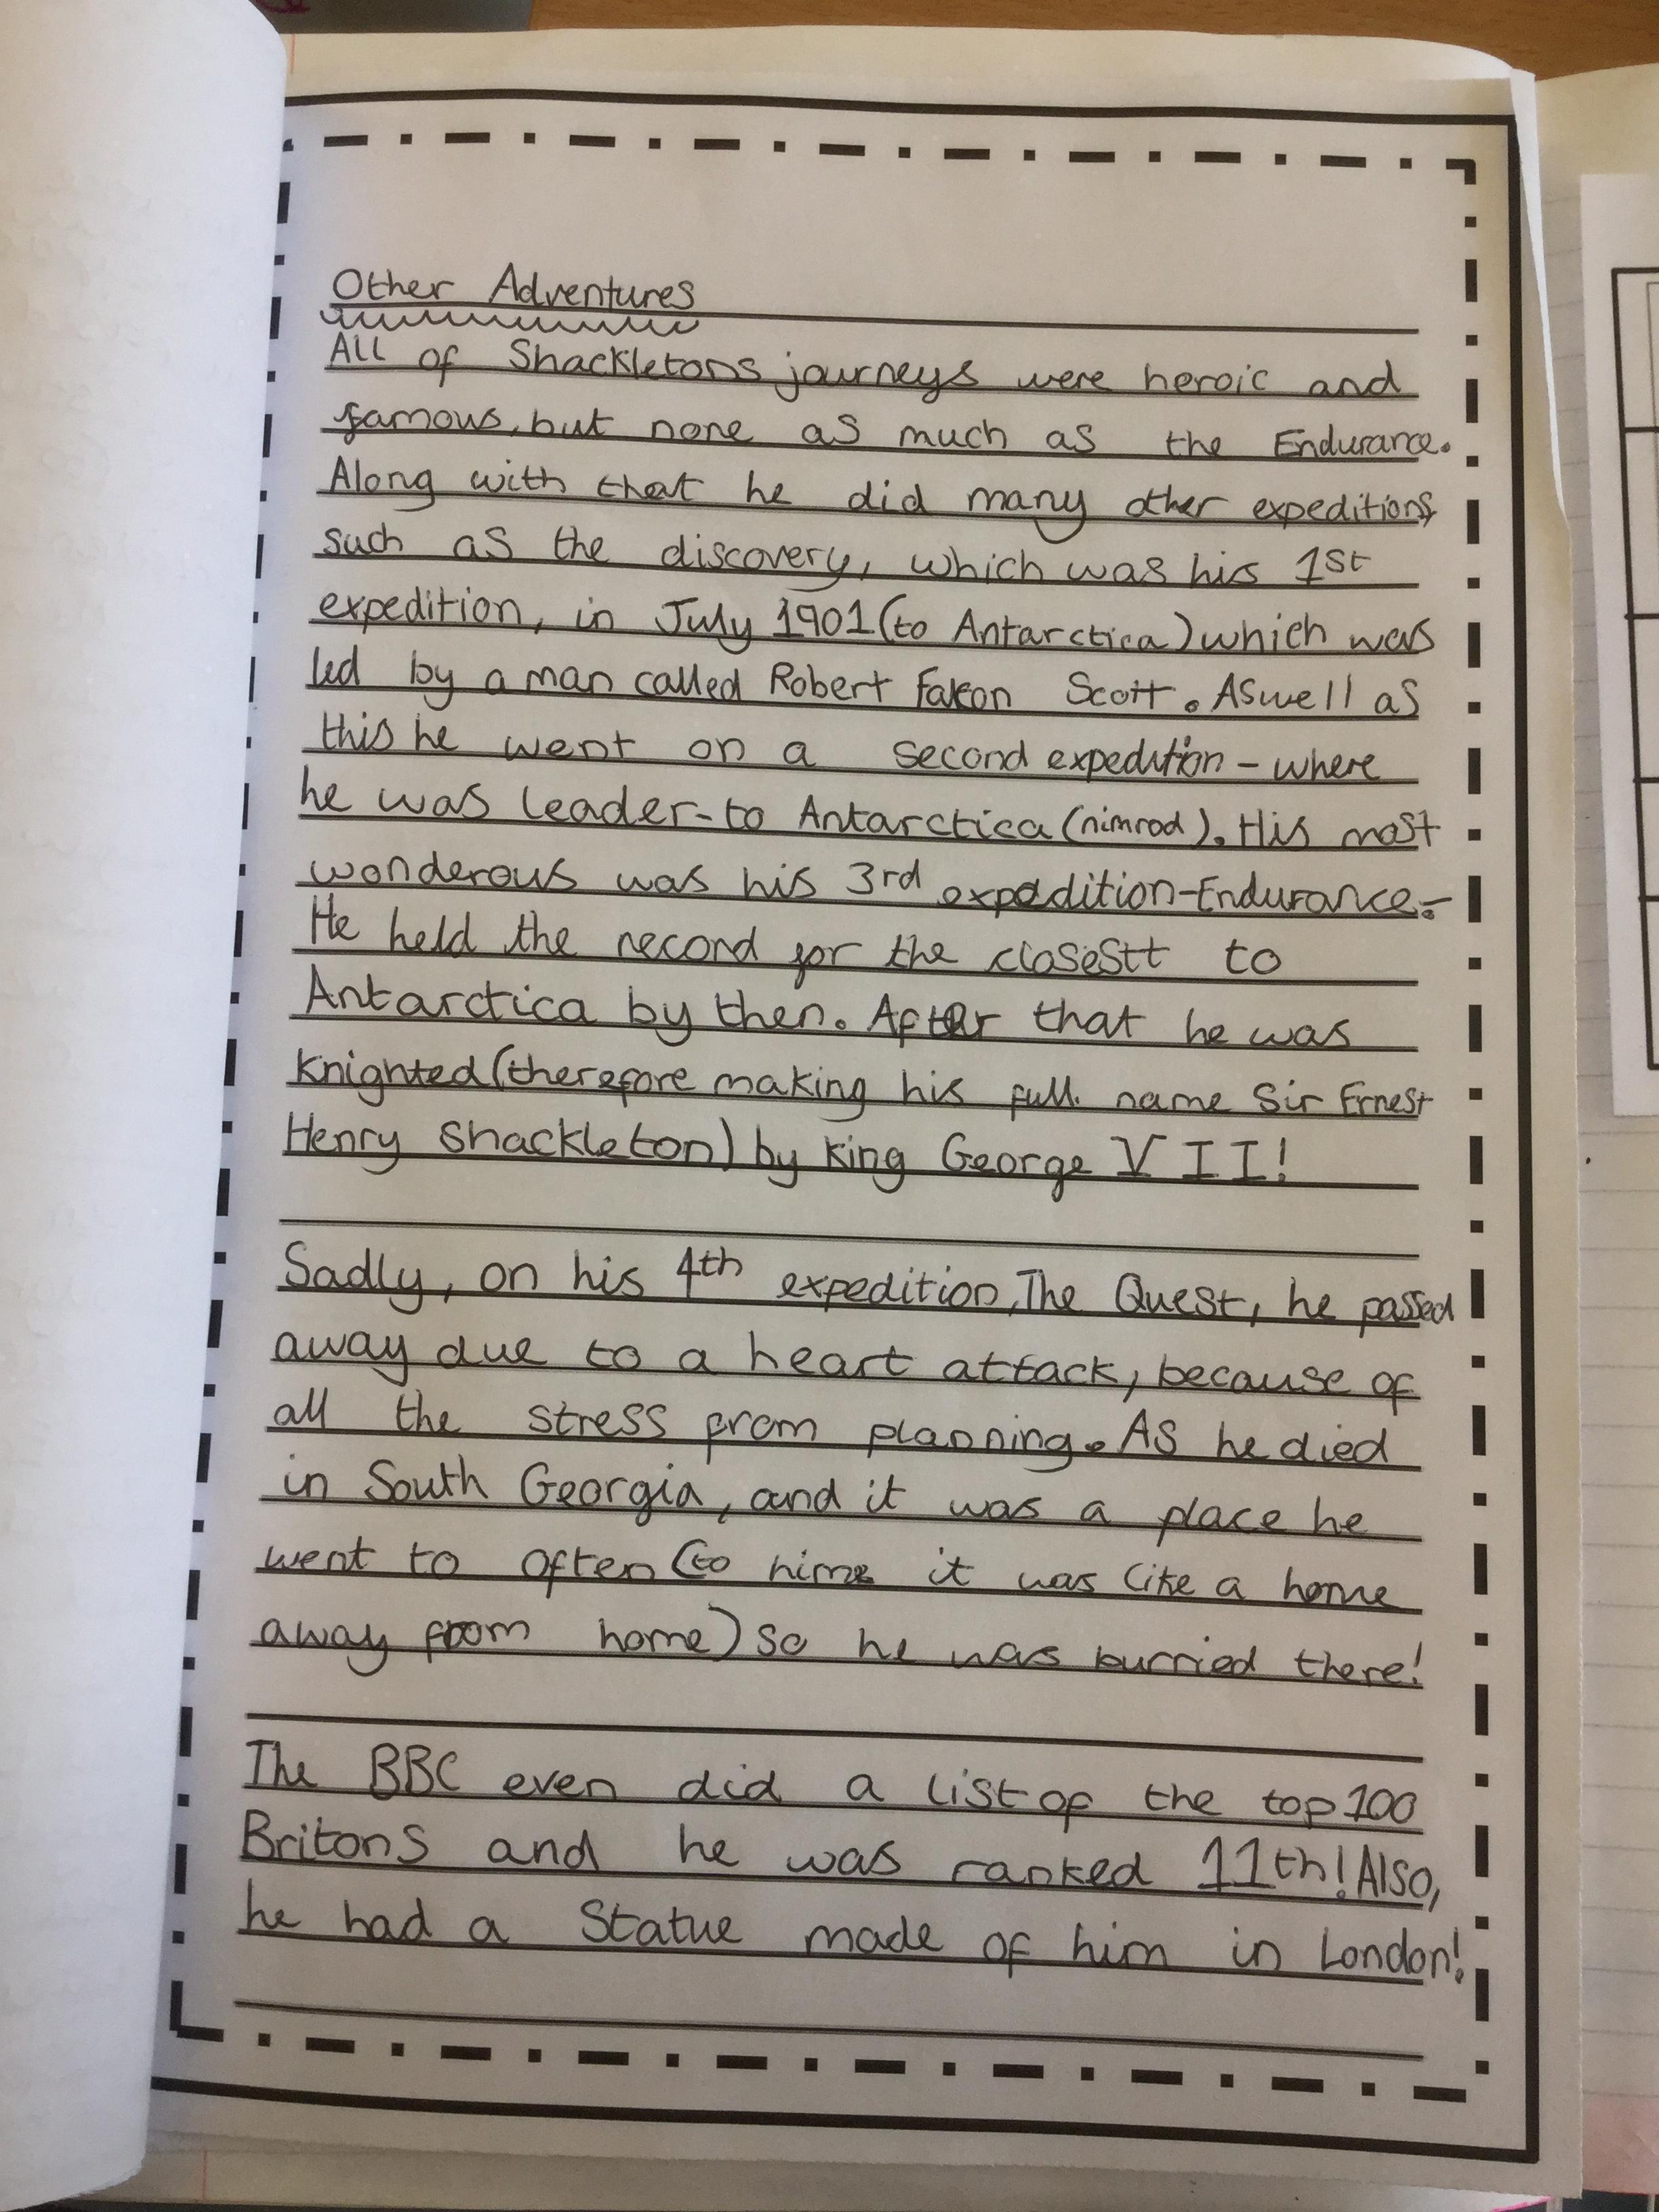 Other Adventures
All of Shackletons journeys were heroic and
famous, but none as much as the Endurance.
Along with that he did many other expeditions,
such as the discovery, which was his 1st
expedition, in July 1901 (to Antarctica) which was
led by a man called Robert Falcon Scott. Aswell as
this he went on a second expedition - where
he was leader - to Antarctica (nimrod). His most
wonderous was his 3rd expedition - Endurance.
He held the record for the closestt to
Antarctica by then. After that he was
Knighted (therefore making his full name Sir Ernest
Henry Shackleton) by King George VII!
Sadly, on his 4th expedition, The Quest, he passed
away due to a heart attack, because of
all the stress from planning. As he died
in South Georgia, and it was a place he
went to often (to him it was like a home
away from home) so he was burried there!
The BBC even did a list of the top 100
Britons and he was ranked 11th! Also,
he had a Statue made of him in London!